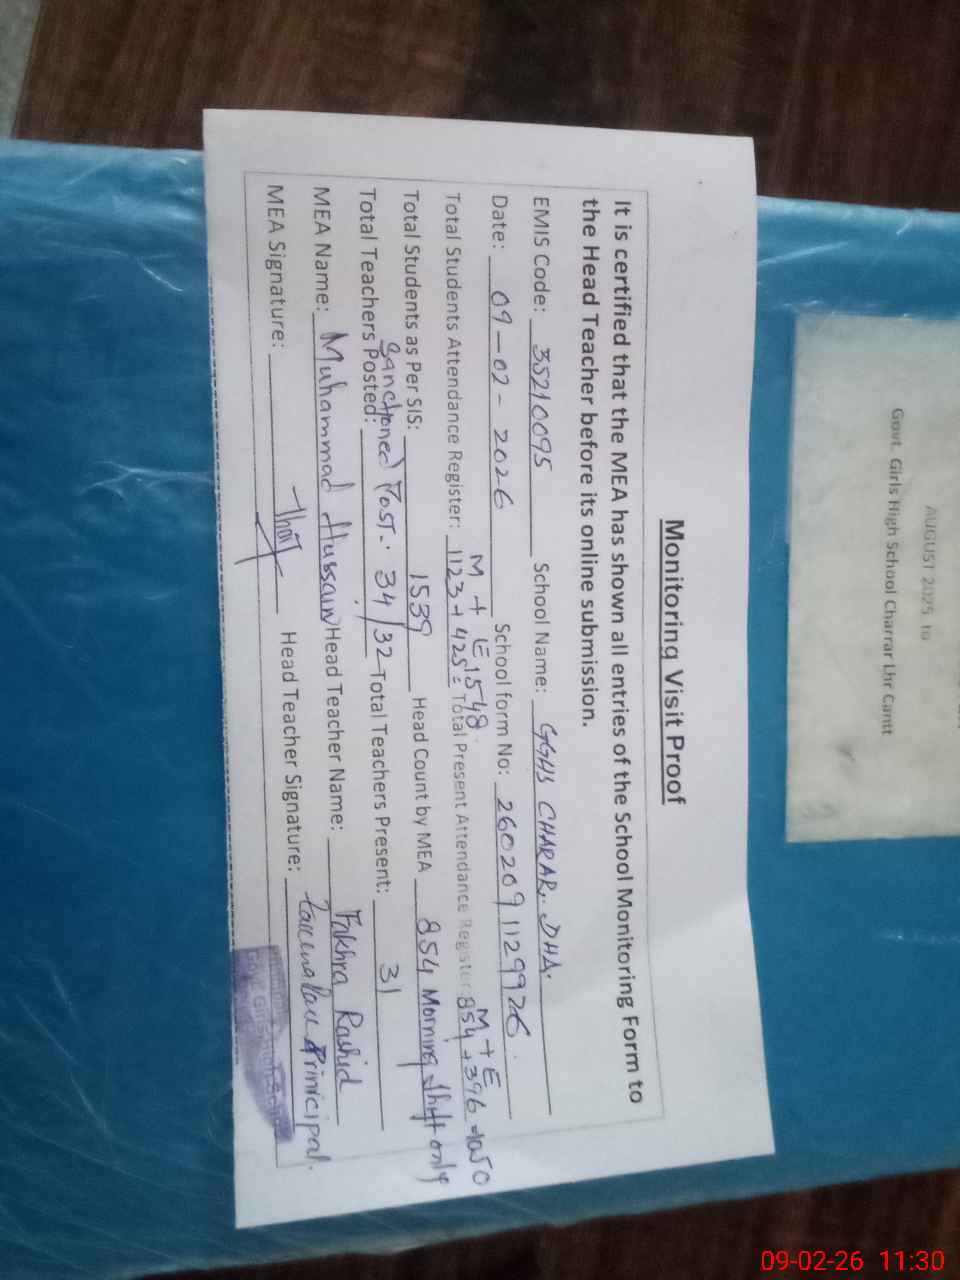 AUGUST 2025 to
Govt. Girls High School Charrar Lhr Cantt
Monitoring Visit Proof
It is certified that the MEA has shown all entries of the School Monitoring Form to
the Head Teacher before its online submission.
EMIS Code: 35210095 School Name: GGHS CHARAR, DHA.
Date: 09-02-2026 School form No: 2602091129926.
M + E M + E
Total Students Attendance Register: 1123 + 425 = 1548. Total Present Attendance Register: 854 + 396
Total Students as Per SIS: 1539 Head Count by MEA 854 Morning shift only
Total Teachers Posted: Sanctioned Post. 34/32 Total Teachers Present: 31
MEA Name: Muhammad Hussain Head Teacher Name: Fakhra Rashid
MEA Signature: Head Teacher Signature: Prinicipal.
Govt. Girls High School
09-02-26 11:30